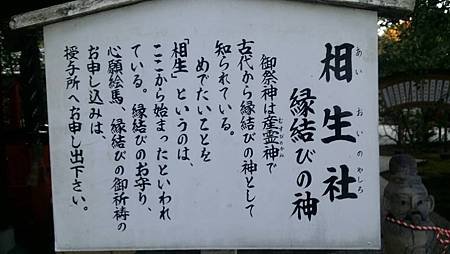 相生社
あいおいのやしろ
縁結びの神
御祭神は産霊神で
むすびのかみ
古代から縁結びの神として
知られている。
めでたいことを
「相生」というのは、
ここから始まったといわれ
ている。縁結びのお守り、
心願絵馬、縁結びの御祈祷の
お申し込みは、
授与所へお申し出下さい。